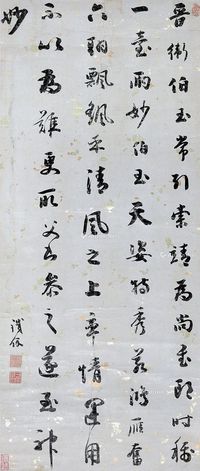 晉衛伯玉常引索靖為尚書郎時稱
一臺兩妙伯玉天姿特秀若鴻雁奮
六翮飄颻乎清風之上率情運用
不以為難更取父書參之遂至神
妙